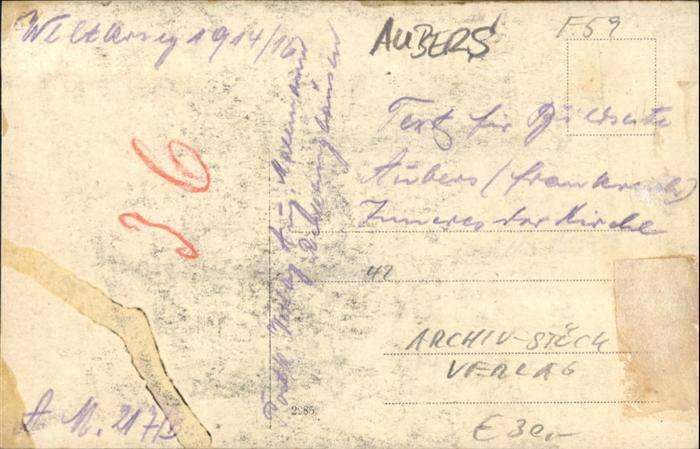 Weltkrieg 1914/16
AUBERS
F59
Text für Bildseite
Aubers (Frankreich)
Inneres der Kirche
36
42
ARCHIV-STÜCK
VERLAG
2985
A M. 217/
€ 30,-